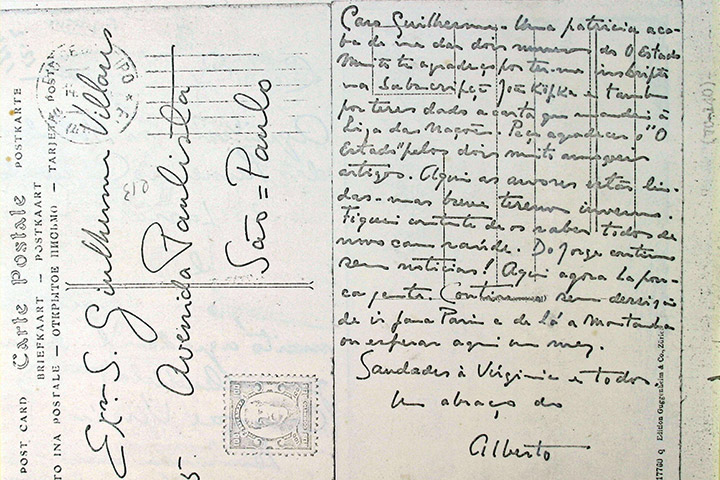 POST CARD Carte Postale POSTKARTE
BRIEFKAART — POSTKAART
ОТКРЫТОЕ ПИСЬМО — TARJETA POSTAL
Exmo S. Guilherme Villares
Avenida Paulista
São=Paulo
Caro Guilherme. Uma patricia aca-
ba de me dar dois numeros do O Estado
Muito te agradeço por ter-me inscripto
na Subscripção João Köpke e tambem
por teres dado a carta que mandei à
Liga das Nações. Peço agradecer o "O
Estado" pelos dois muito amaveis
artigos. Aqui as arvores estão lin-
das. mas breve teremos inverno.
Fiquei contente de os saber todos de
novo com saúde. Do Jorge continuo
sem noticias! Aqui agora ha pou-
ca gente. Continuo sem decisão
de ir para Paris e de lá a
ou esperar aqui um mez.
Saudades à Virginia e todos.
Um abraço do
Alberto
17793 q Edition Guggenheim & Co., Zürich